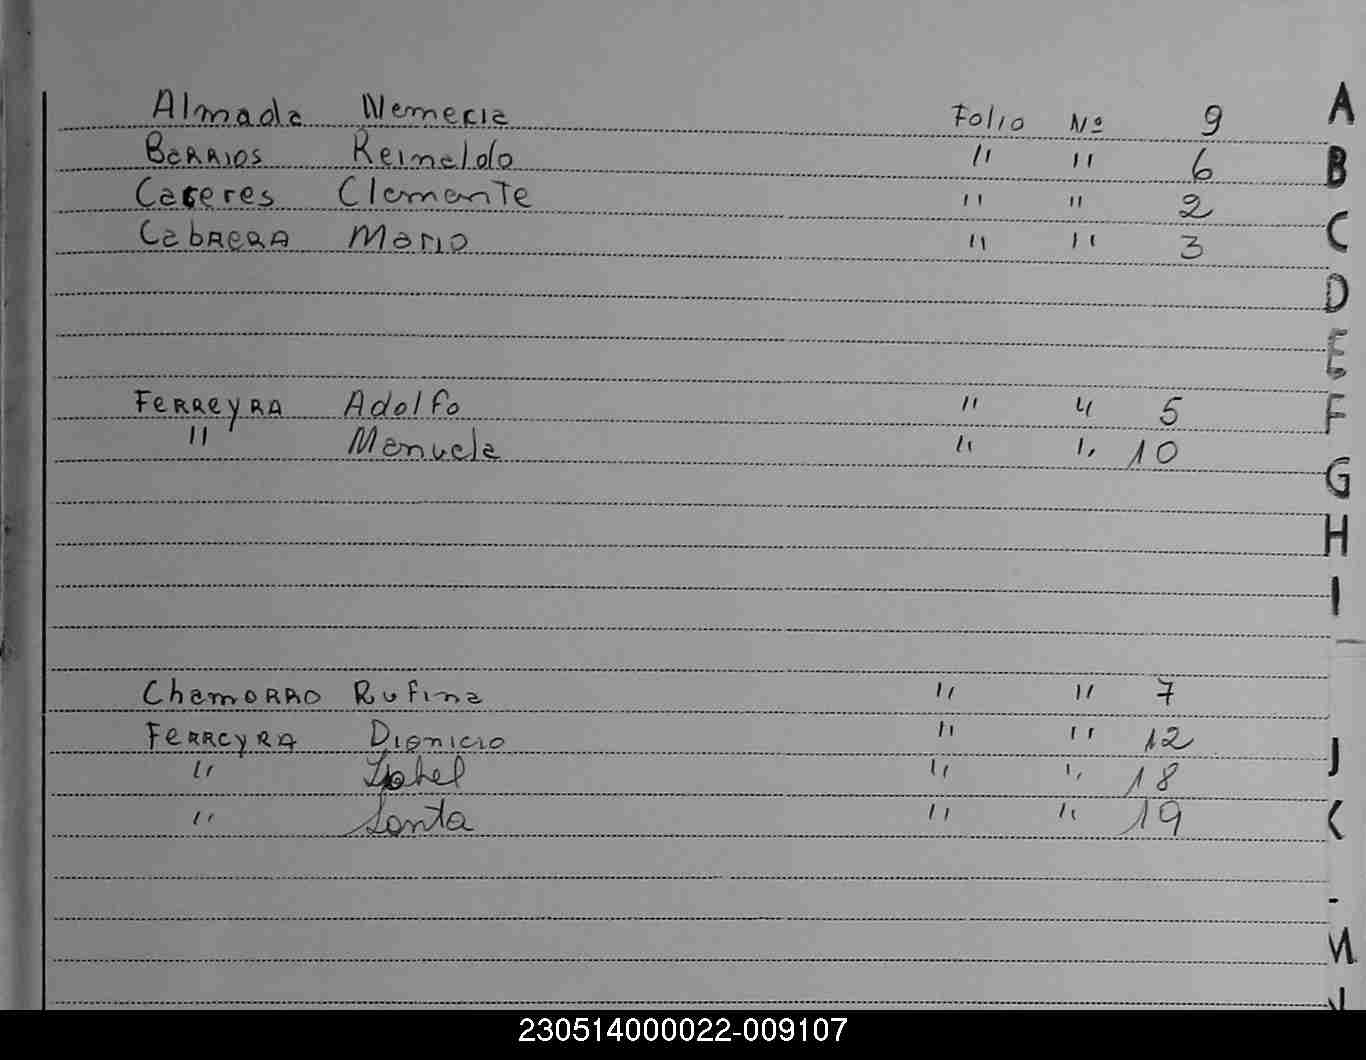 Almada Nemecia Folio Nº 9
Berrios Reinaldo " " 6
Caceres Clemente " " 2
Cabrera Mario " " 3
Ferreyra Adolfo " " 5
" Manuela " " 10
Chamorro Rufina " " 7
Ferreyra Dionicio " " 12
" Isabel " " 18
" Santa " " 19
A
B
C
D
E
F
G
H
I
J
K
M
230514000022-009107